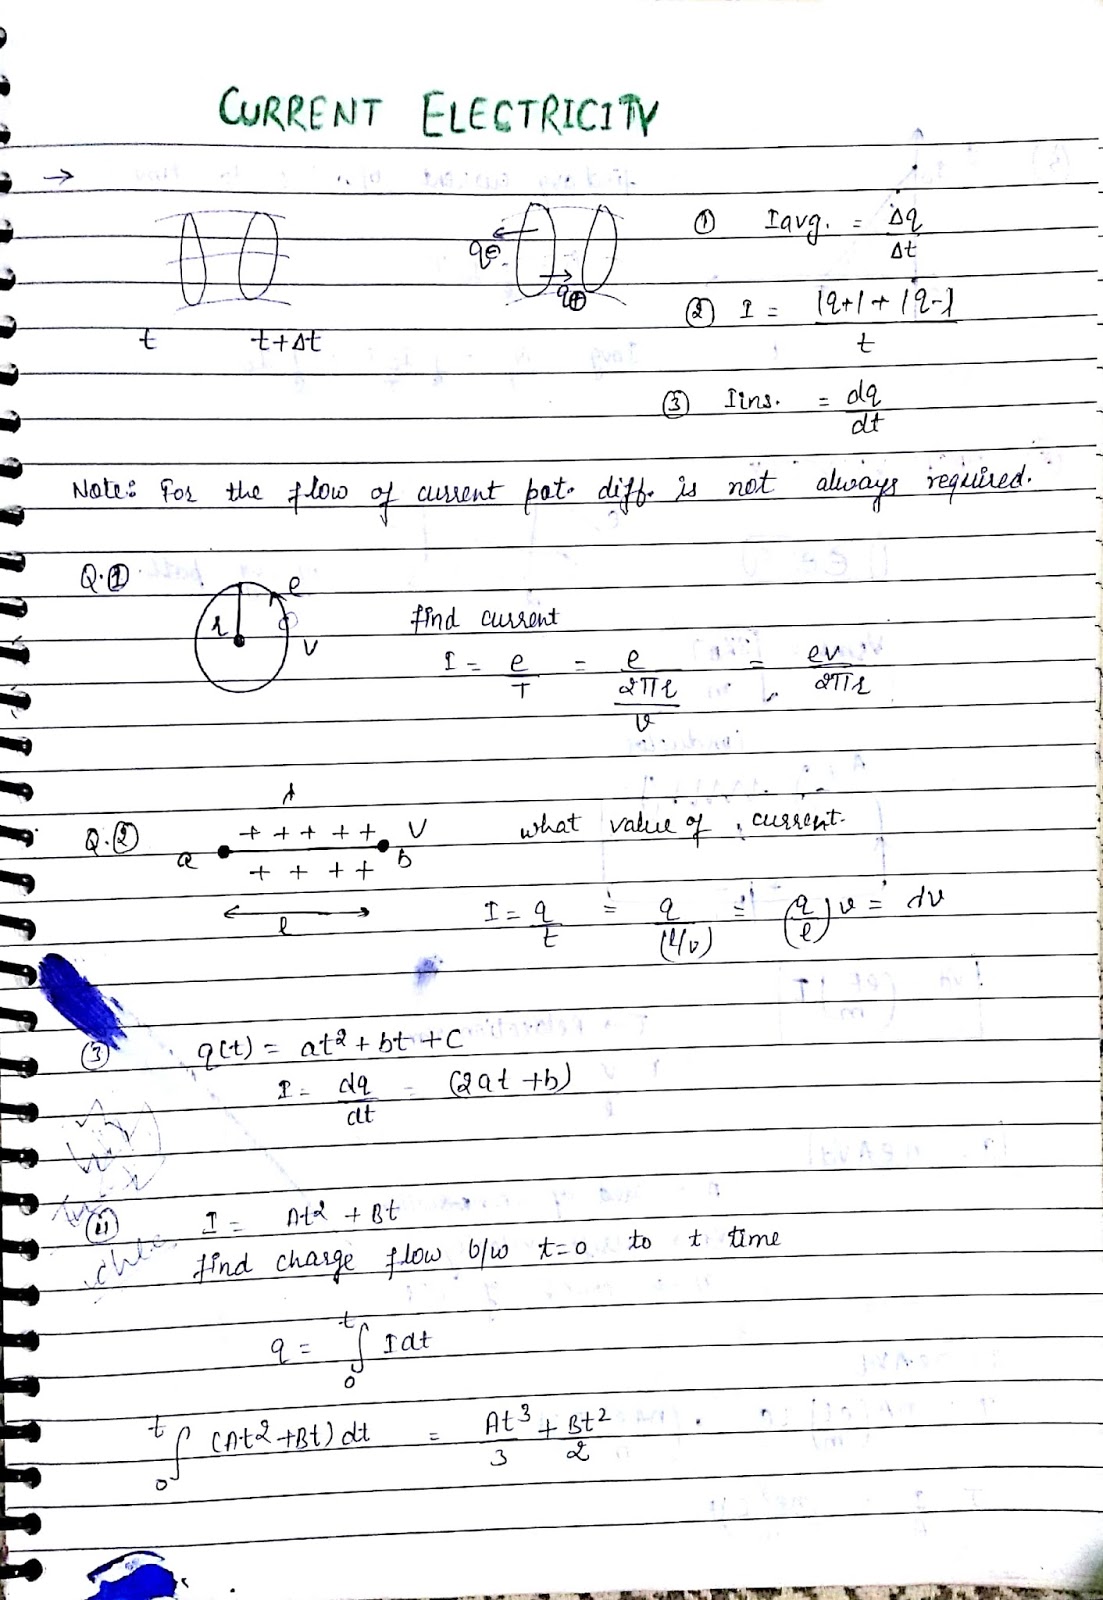 CURRENT ELECTRICITY
→
t t+Δt
q⊖ q⊕
① Iavg. = Δq/Δt
② I = |q+| + |q-|/t
③ Iins. = dq/dt
Note: For the flow of current pot. diff. is not always required.
Q.① r e v
find current
I = e/T = e/(2πr/v) = ev/2πr
Q.② λ
+ + + + + V
a b
+ + + +
l
what value of current.
I = q/t = q/(l/v) = (q/l)v = λv
③ q(t) = at² + bt + C
I = dq/dt = (2at + b)
(ii) I = At² + Bt
find charge flow b/w t=0 to t time
q = ∫₀ᵗ I dt
∫₀ᵗ (At² + Bt) dt = At³/3 + Bt²/2